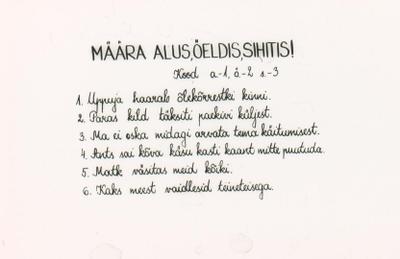 MÄÄRA ALUS, ÖELDIS, SIHITIS!
Kood a-1, ö-2 s-3
1. Uppuja haarab õlekõrrestki kinni.
2. Paras kild täksiti paekivi küljest.
3. Ma ei oska midagi arvata tema käitumisest.
4. Ants sai kõva käsu kasti kaant mitte puutuda.
5. Matk väsitas meid kõiki.
6. Kaks meest vaidlesid teineteisega.